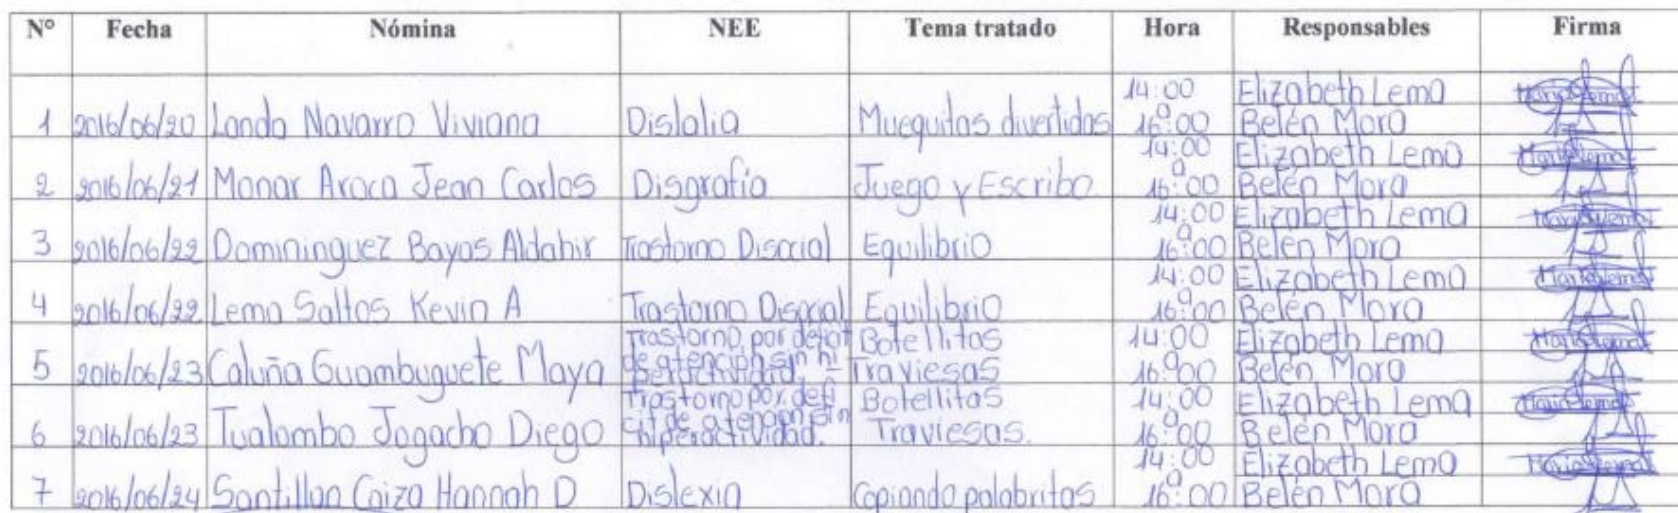 N° Fecha Nómina NEE Tema tratado Hora Responsables Firma
1 2016/06/20 Landa Navarro Viviana Dislalia Muequitas divertidas 14:00 a 16:00 Elizabeth Lema Belén Mora
2 2016/06/21 Manar Araca Jean Carlos Disgrafía Juego y Escribo 14:00 a 16:00 Elizabeth Lema Belén Mora
3 2016/06/22 Domininguez Bayas Aldahir Trastorno Disocial Equilibrio 14:00 a 16:00 Elizabeth Lema Belén Mora
4 2016/06/22 Lema Saltos Kevin A Trastorno Disocial Equilibrio 14:00 a 16:00 Elizabeth Lema Belén Mora
5 2016/06/23 Caluña Guambuguete Maya Trastorno por déficit de atención sin hi- Botellitas Traviesas 14:00 a 16:00 Elizabeth Lema Belén Mora
6 2016/06/23 Tualombo Jogacho Diego Trastorno por defi cit de atencion sin hiperactividad. Botellitas Traviesas. 14:00 a 16:00 Elizabeth Lema Belén Mora
7 2016/06/24 Santillan Caiza Hannah D Dislexia Copiando palabritas 14:00 a 16:00 Elizabeth Lema Belén Mora